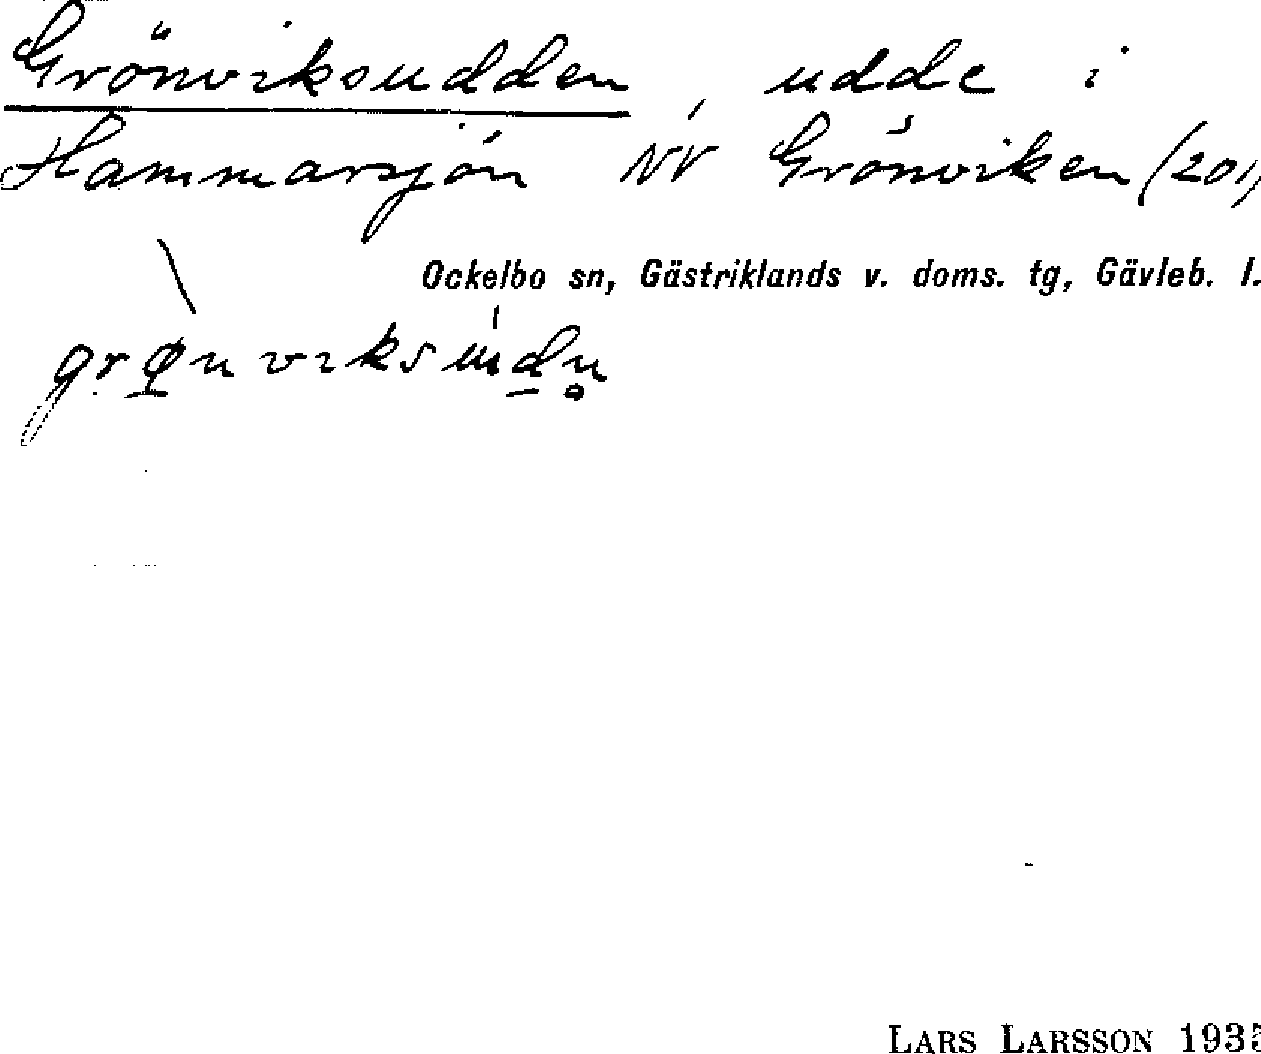 Grönviksudden, udde i
Hammarsjön NV Grönviken (201,
Ockelbo sn, Gästriklands v. doms. tg, Gävleb. l.
LARS LARSSON 1935